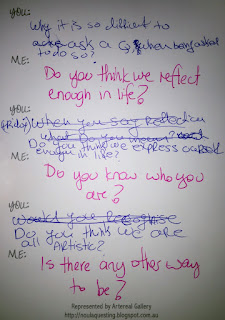 YOU:
Why it is so difficult to
ask a Q, when being asked
to do so?
ME:
Do you think we reflect
enough in life?
YOU:
When you say Reflection
What Do you mean?
Do you think we express ourself
enough in life?
ME:
Do you know who you
are?
YOU:
Would you Recognise
Do you think we are
all ARTISTIC?
ME:
Is there any other way
to be?
Represented by Artereal Gallery
http://noulaquesting.blogspot.com.au